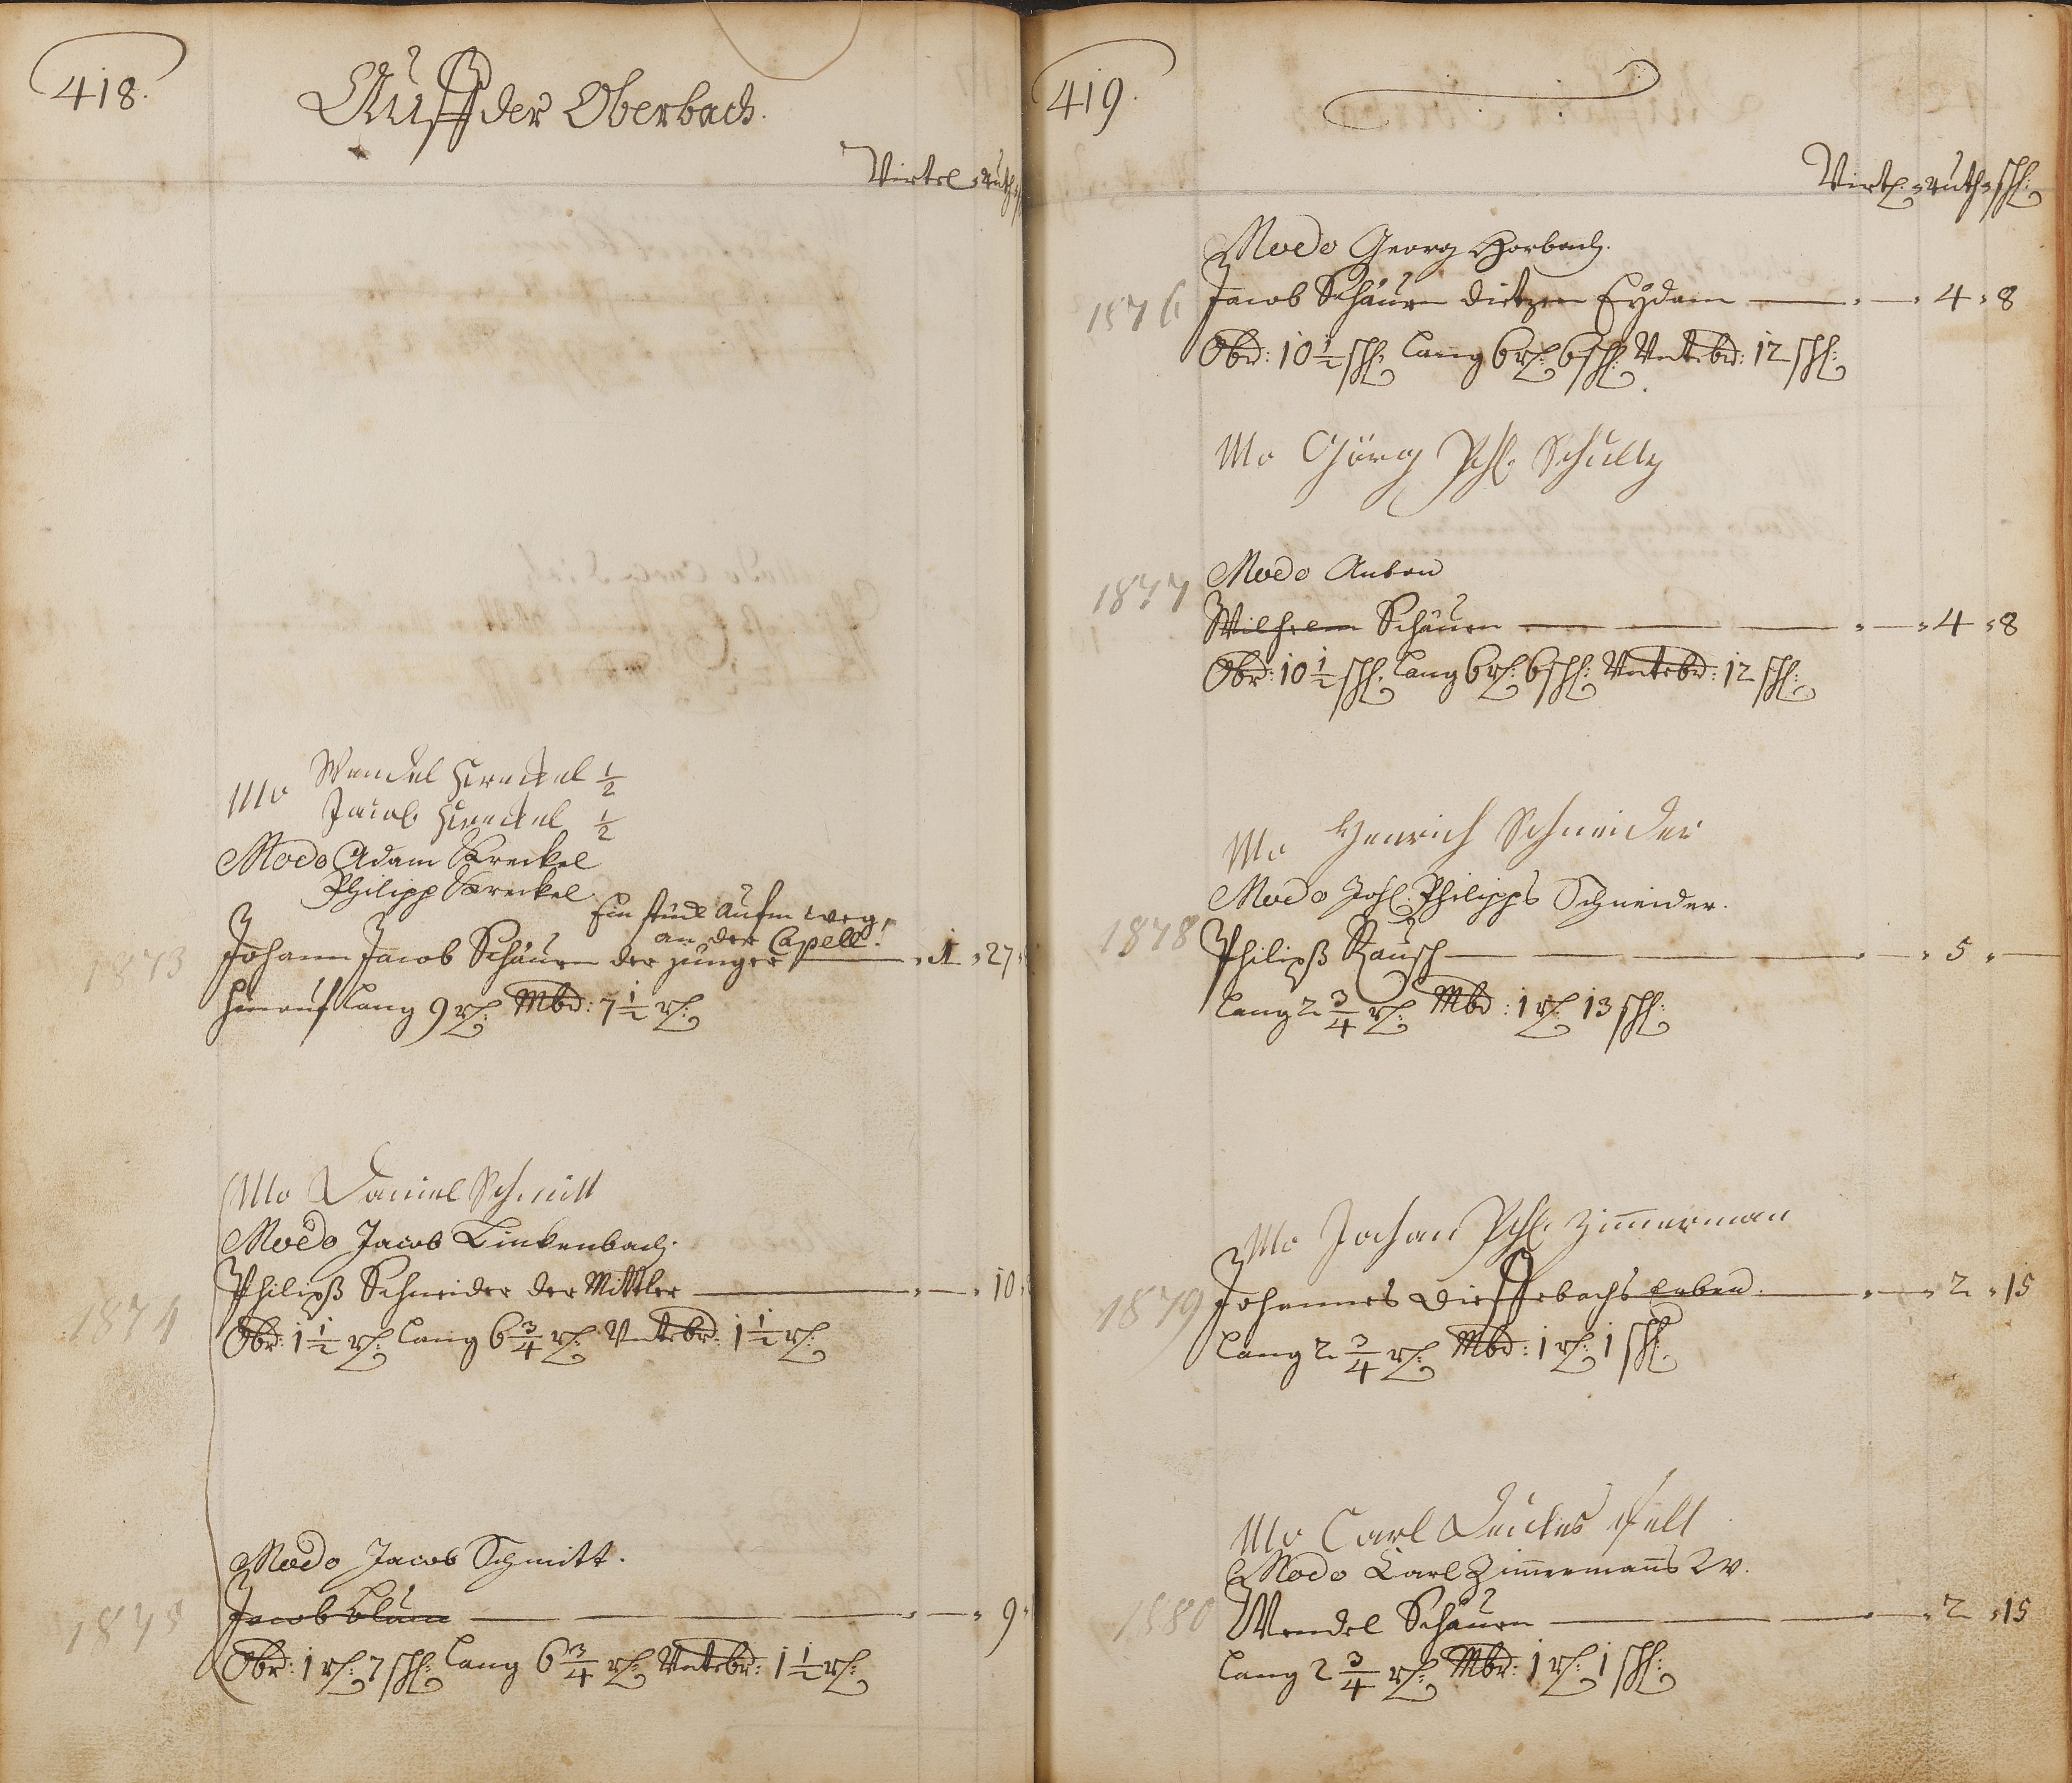 418.
Auff der Oberbach.
Virtel ruth
Mo Wendel Kreckel 1/2
Jacob Kreckel 1/2
Modo Adam Kreckel
Philipp Kreckel
Ein stück aufm weg
an der Capell.
1873 Johann Jacob Schäuren der junger 1 27
hinauf lang 9 r: Mbr: 7 1/2 r:
Mo Daniel Schmitt
Modo Jacob Linkenbach.
1874 Philipß Schneider der Mittler 10
Obr: 1 1/2 r: lang 6 3/4 r: Vnterbr: 1 1/2 r:
Modo Jacob Schmitt.
1875 Jacob Blum 9
Obr: 1 r: 7 sch: lang 6 3/4 r: Vnterbr: 1 1/2 r:
419.
Virt: ruth sch:
Modo Georg Horbach.
1876 Jacob Schäuren Dietzen Eydam 4 8
Obr: 10 1/2 sch: lang 6 r: 6 sch: Vnterbr: 12 sch:
Mo Görg Phl. Schultz
Modo Anton
1877 Wilhelm Schäuren 4 8
Obr: 10 1/2 sch: lang 6 r: 6 sch: Vnterbr: 12 sch:
Mo Henrich Schneider
Modo Joh: Philipps Schneider.
1878 Philipß Rausch 5
lang 2 3/4 r: Mbr: 1 r: 13 sch:
Mo Johan Phl. Zimerman
1879 Johannes Dieffebachs Erben 2 15
lang 2 3/4 r: Mbr: 1 r: 1 sch:
Mo Carl
Modo Carl Zimermans W.
1880 Wendel Schäuren 2 15
lang 2 3/4 r: Mbr: 1 r: 1 sch: